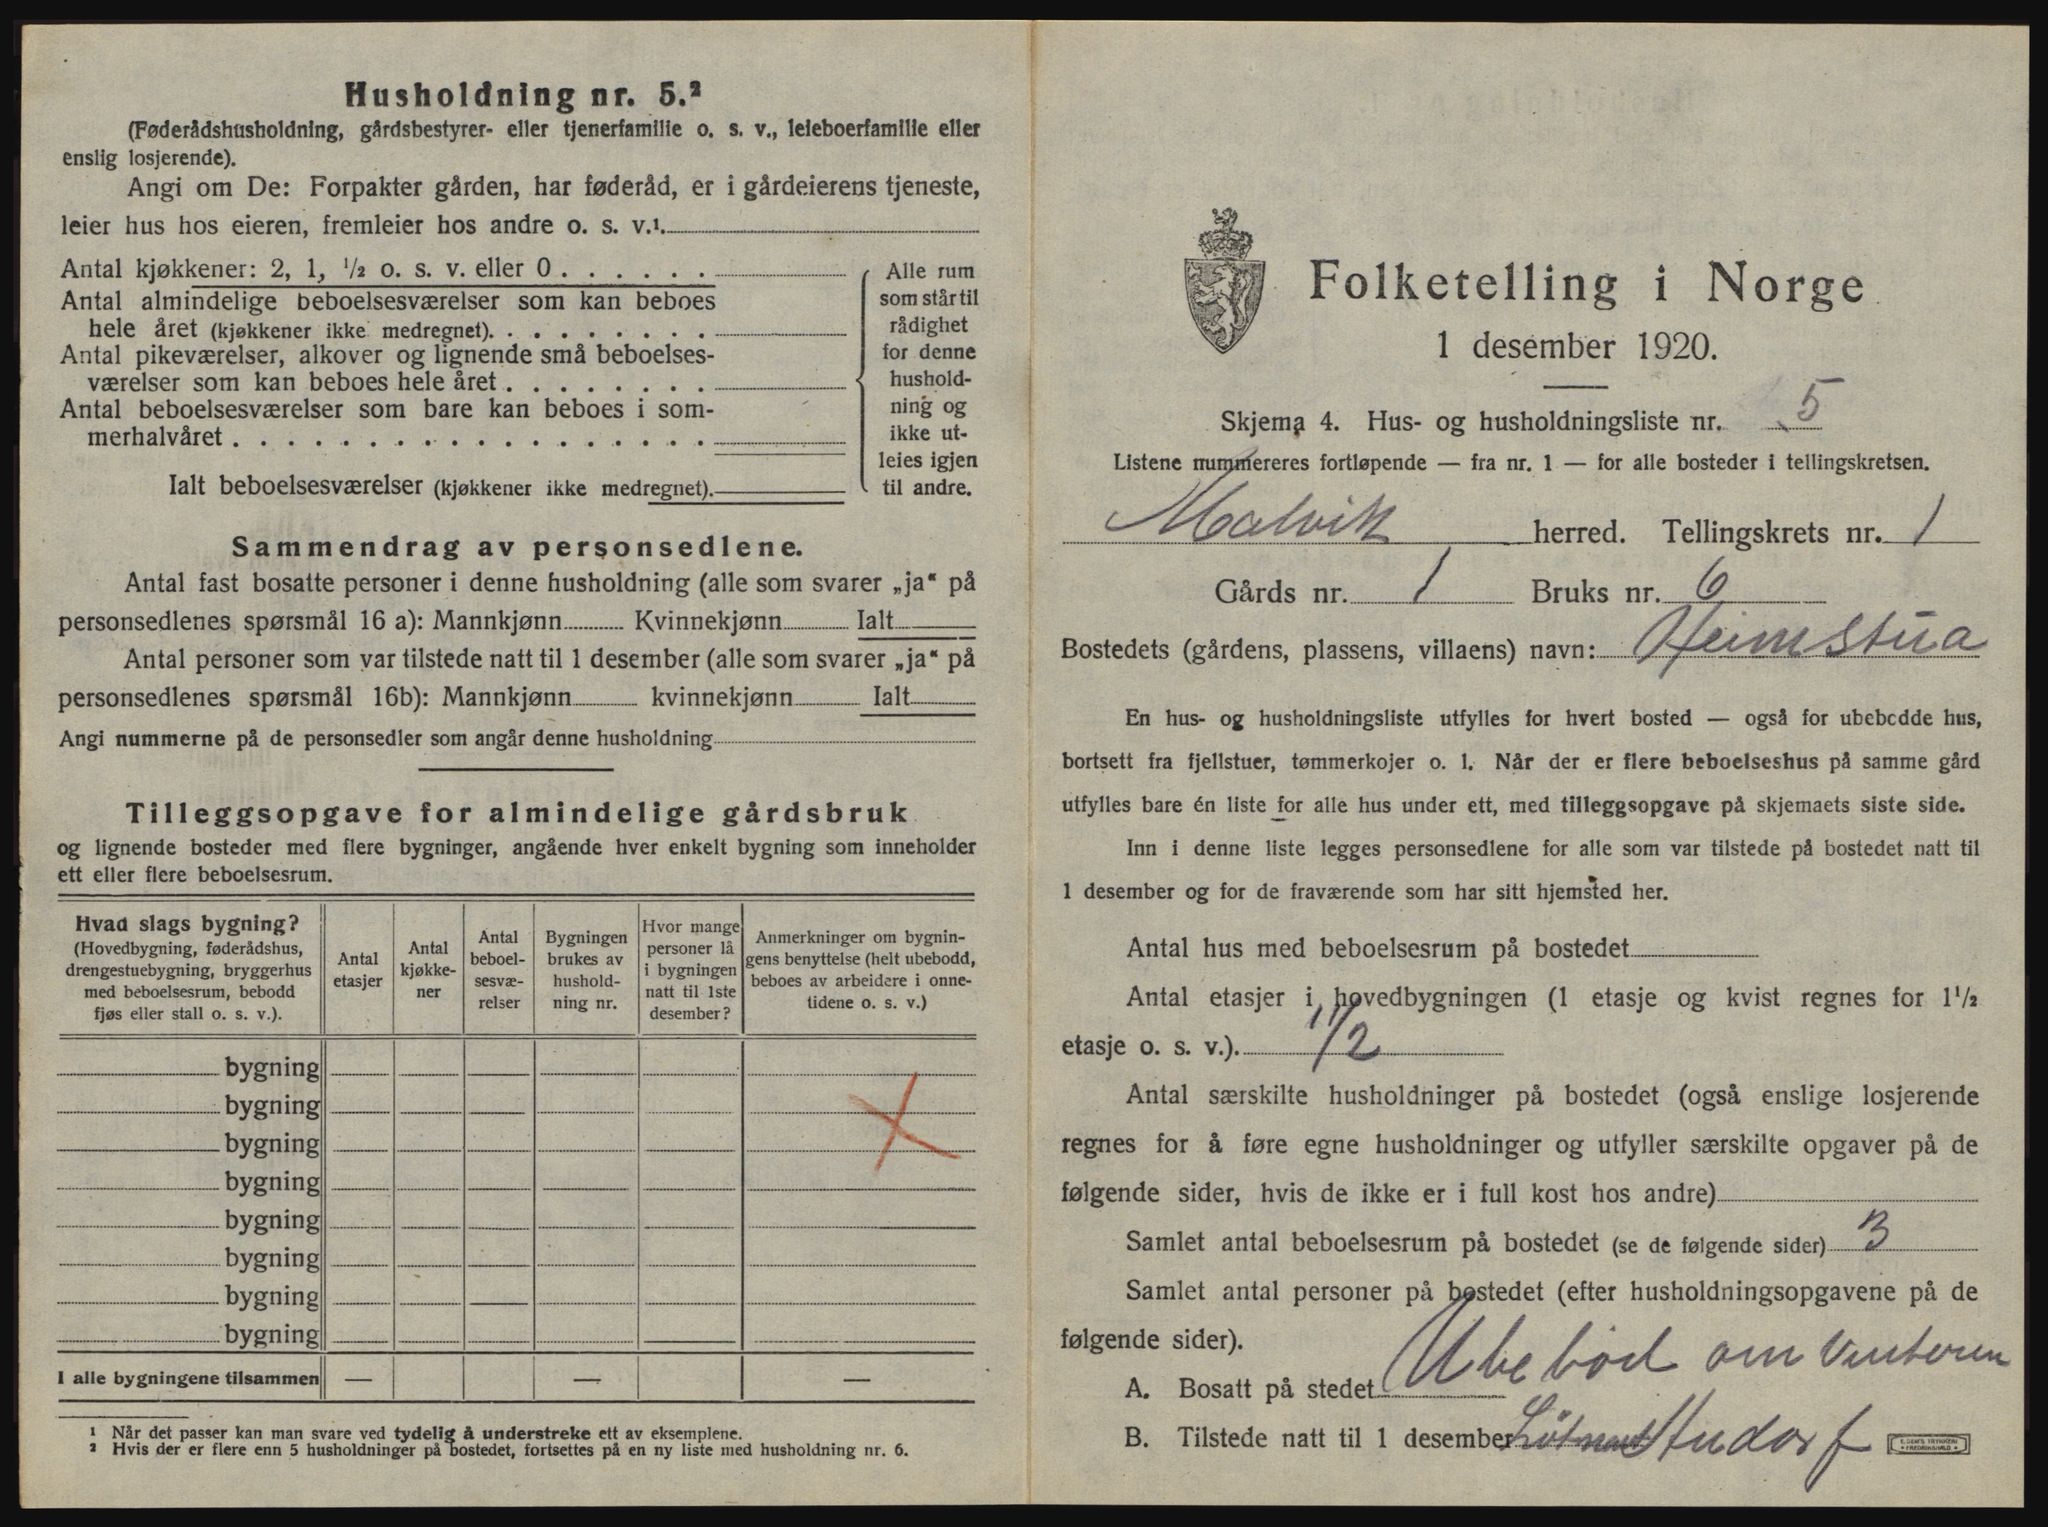 Husholdning nr. 5.²
(Føderådshusholdning, gårdsbestyrer- eller tjenerfamilie o. s. v., leieboerfamilie eller
enslig losjerende).
Angi om De: Forpakter gården, har føderåd, er i gårdeierens tjeneste,
leier hus hos eieren, fremleier hos andre o. s. v.¹
Antal kjøkkener: 2, 1, ½ o. s. v. eller 0 . . . . . .
Antal almindelige beboelsesværelser som kan beboes
hele året (kjøkkener ikke medregnet). . . . . . . . .
Antal pikeværelser, alkover og lignende små beboelses-
værelser som kan beboes hele året . . . . . . . .
Antal beboelsesværelser som bare kan beboes i som-
merhalvåret . . . . . . . . . . . . . . . . . .
Ialt beboelsesværelser (kjøkkener ikke medregnet).
Alle rum
som står til
rådighet
for denne
hushold-
ning og
ikke ut-
leies igjen
til andre.
Sammendrag av personsedlene.
Antal fast bosatte personer i denne husholdning (alle som svarer „ja“ på
personsedlenes spørsmål 16 a): Mannkjønn Kvinnekjønn Ialt
Antal personer som var tilstede natt til 1 desember (alle som svarer „ja“ på
personsedlenes spørsmål 16b): Mannkjønn kvinnekjønn Ialt
Angi nummerne på de personsedler som angår denne husholdning
Tilleggsopgave for almindelige gårdsbruk
og lignende bosteder med flere bygninger, angående hver enkelt bygning som inneholder
ett eller flere beboelsesrum.
Hvad slags bygning?
(Hovedbygning, føderådshus,
drengestuebygning, bryggerhus
med beboelsesrum, bebodd
fjøs eller stall o. s. v.).
Antal
etasjer
Antal
kjøkke-
ner
Antal
beboel-
sesvæ-
relser
Bygningen
brukes av
hushold-
ning nr.
Hvor mange
personer lå
i bygningen
natt til 1ste
desember?
Anmerkninger om bygnin-
gens benyttelse (helt ubebodd,
beboes av arbeidere i onne-
tidene o. s. v.)
bygning
bygning
bygning
bygning
bygning
bygning
bygning
bygning
I alle bygningene tilsammen — — —
¹ Når det passer kan man svare ved tydelig å understreke ett av eksemplene.
² Hvis der er flere enn 5 husholdninger på bostedet, fortsettes på en ny liste med husholdning nr. 6.
Folketelling i Norge
1 desember 1920.
Skjema 4. Hus- og husholdningsliste nr. 5
Listene nummereres fortløpende — fra nr. 1 — for alle bosteder i tellingskretsen.
Malvik herred. Tellingskrets nr. 1
Gårds nr. 1 Bruks nr. 6
Bostedets (gårdens, plassens, villaens) navn: Heimstua
En hus- og husholdningsliste utfylles for hvert bosted — også for ubebodde hus,
bortsett fra fjellstuer, tømmerkojer o. l. Når der er flere beboelseshus på samme gård
utfylles bare én liste for alle hus under ett, med tilleggsopgave på skjemaets siste side.
Inn i denne liste legges personsedlene for alle som var tilstede på bostedet natt til
1 desember og for de fraværende som har sitt hjemsted her.
Antal hus med beboelsesrum på bostedet
Antal etasjer i hovedbygningen (1 etasje og kvist regnes for 1½
etasje o. s. v.). 1 1/2
Antal særskilte husholdninger på bostedet (også enslige losjerende
regnes for å føre egne husholdninger og utfyller særskilte opgaver på de
følgende sider, hvis de ikke er i full kost hos andre)
Samlet antal beboelsesrum på bostedet (se de følgende sider) 3
Samlet antal personer på bostedet (efter husholdningsopgavene på de
følgende sider).
A. Bosatt på stedet Ubebod om Vinteren
B. Tilstede natt til 1 desember